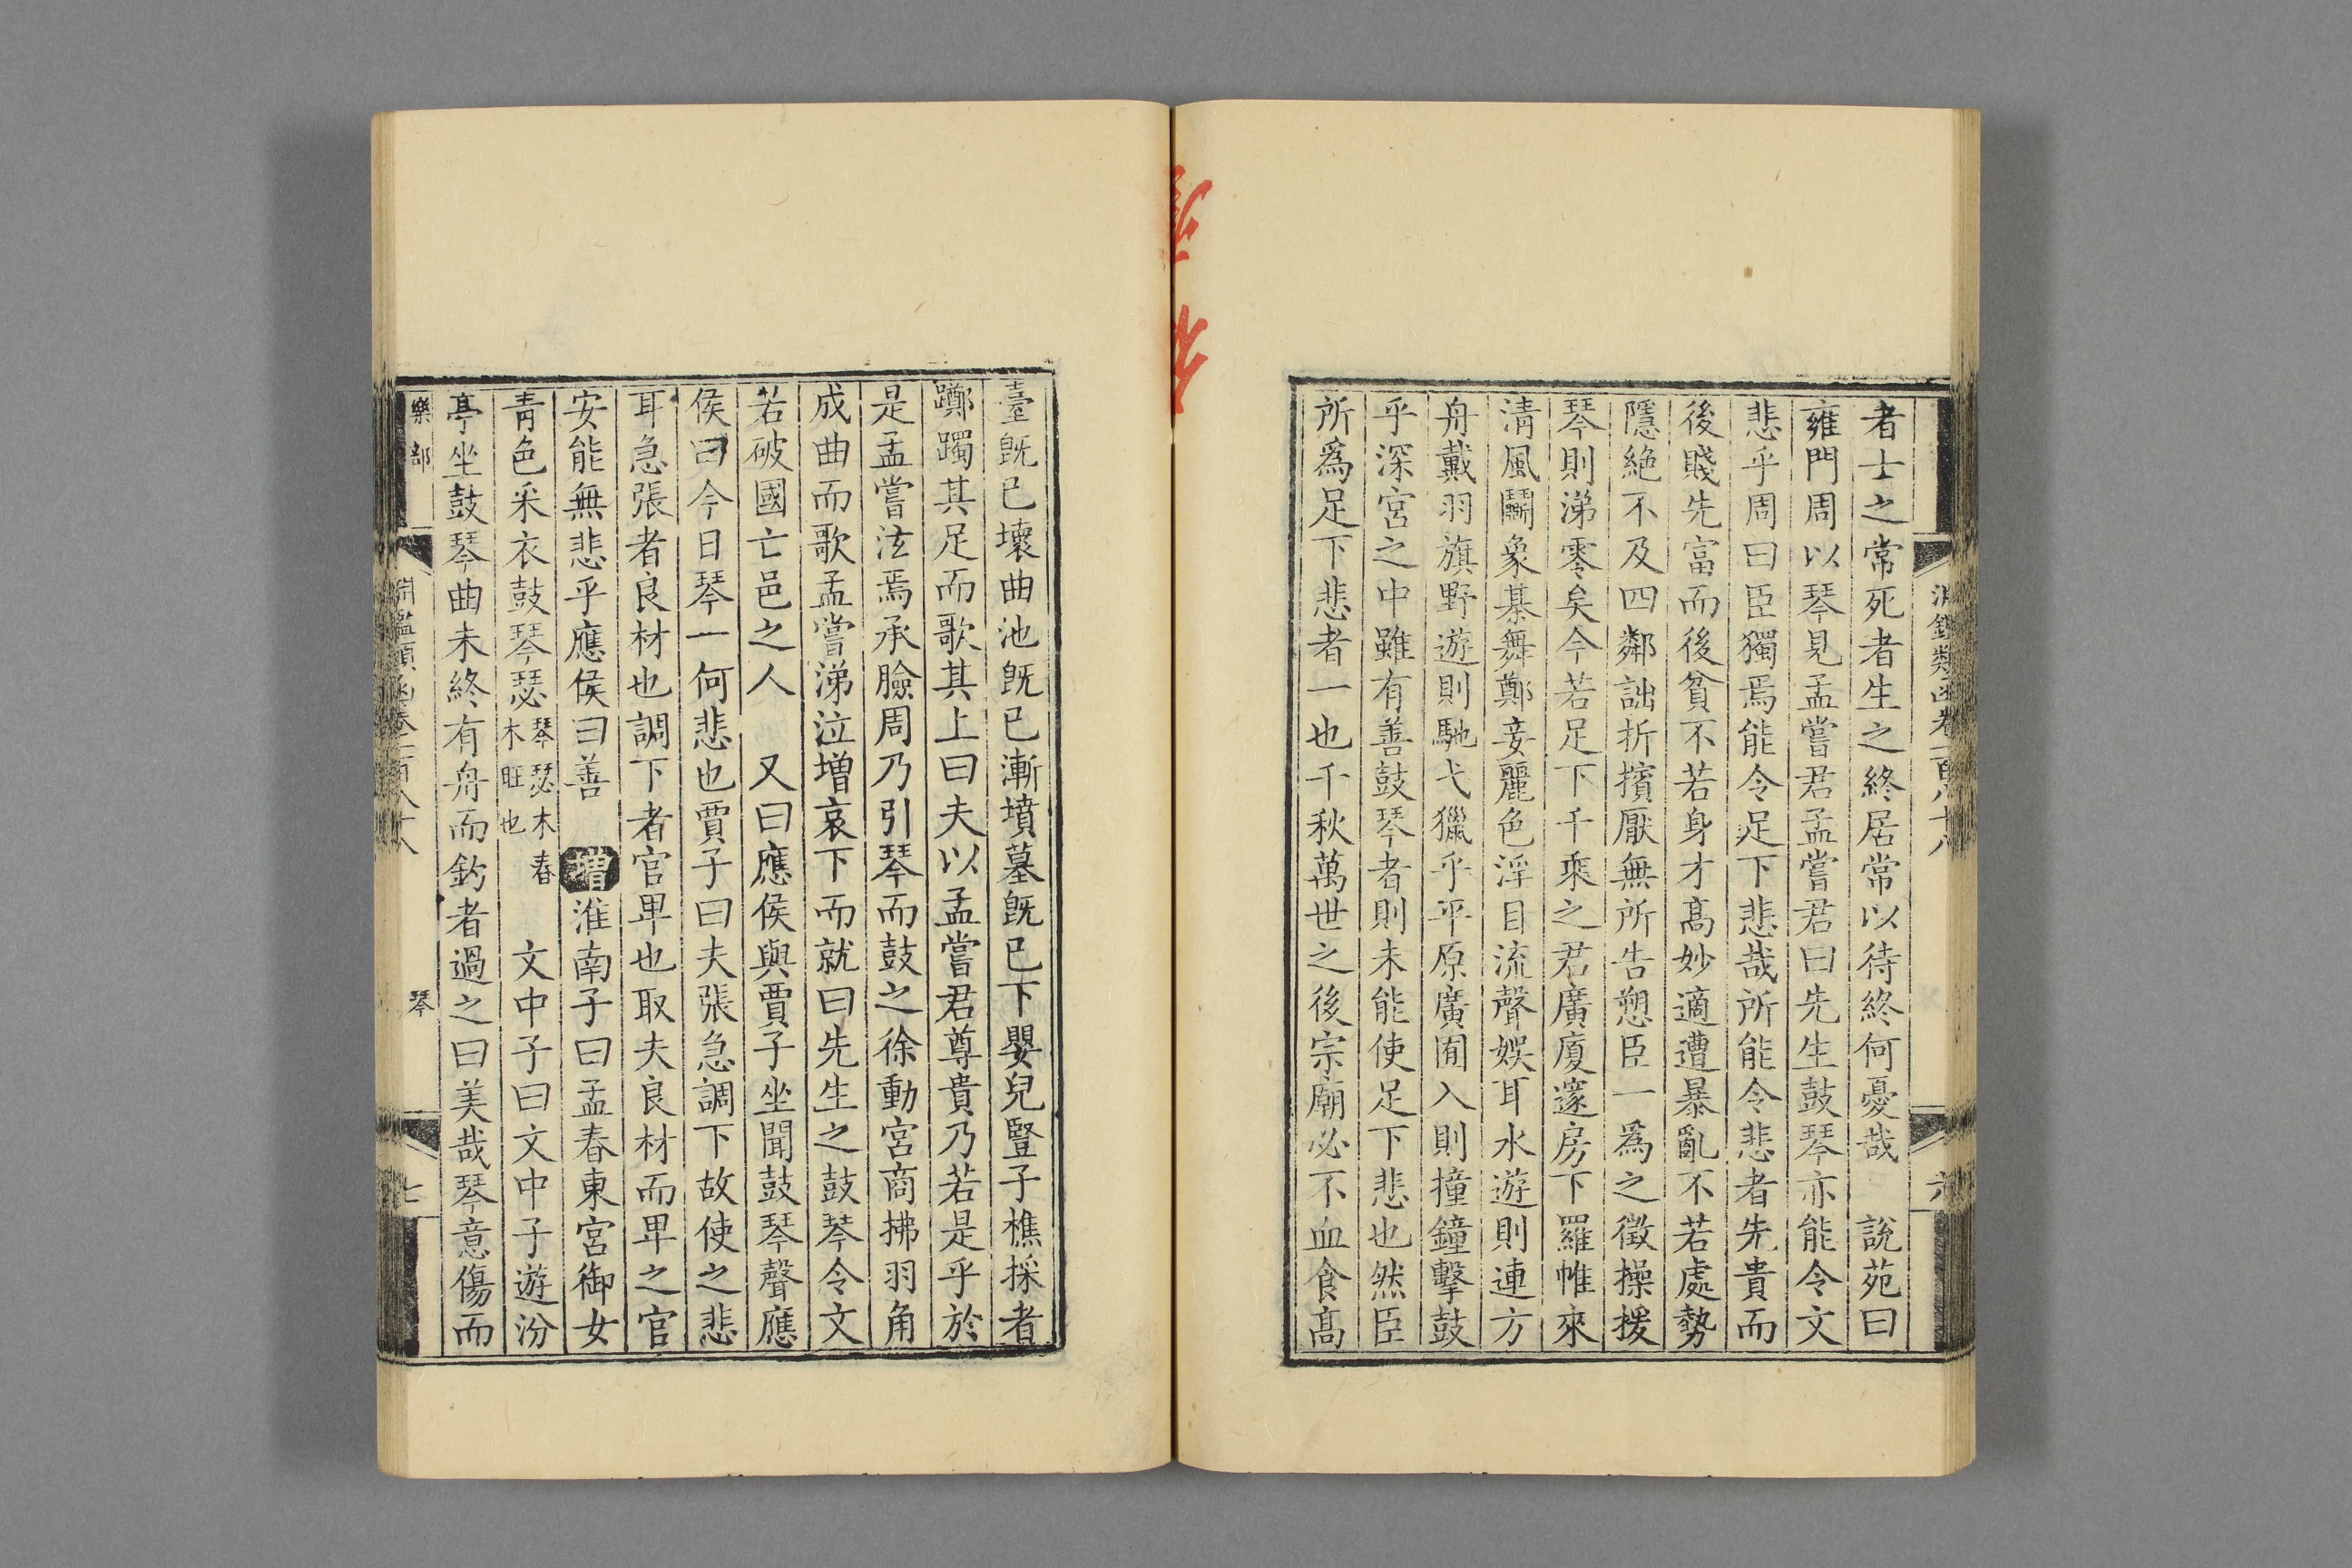 者士之常死者生之終居常以待終何憂哉　說苑曰
雍門周以琴見孟嘗君孟嘗君曰先生鼓琴亦能令文
悲乎周曰臣獨焉能令足下悲哉所能令悲者先貴而
後賤先富而後貧不若身才高妙適遭暴亂不若處勢
隱絶不及四鄰詘折擯厭無所告愬臣一爲之徽操援
琴則涕零矣今若足下千乘之君廣廈邃房下羅帷來
淸風鬭象棊舞鄭妾麗色淫目流聲娛耳水遊則連方
舟戴羽旗野遊則馳弋獵乎平原廣囿入則撞鐘擊鼓
乎深宮之中雖有善鼓琴者則未能使足下悲也然臣
所爲足下悲者一也千秋萬世之後宗廟必不血食高
臺旣已壞曲池旣已漸墳墓旣已下嬰兒豎子樵採者
躑躅其足而歌其上曰夫以孟嘗君尊貴乃若是乎於
是孟嘗泫焉承臉周乃引琴而鼓之徐動宮商拂羽角
成曲而歌孟嘗涕泣增哀下而就曰先生之鼓琴令文
若破國亡邑之人　又曰應侯與賈子坐聞鼓琴聲應
侯曰今日琴一何悲也賈子曰夫張急調下故使之悲
耳急張者良材也調下者官卑也取夫良材而卑之官
安能無悲乎應侯曰善　增淮南子曰孟春東宮御女
靑色釆衣鼓琴瑟琴瑟木春木旺也　文中子曰文中子遊汾
亭坐鼓琴曲未終有舟而釣者過之曰美哉琴意傷而
樂部
琴
七